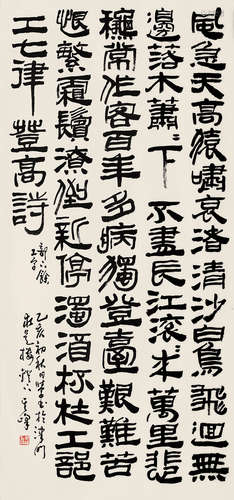 風急天高猿嘯哀渚清沙白鳥飛迴無
邊落木蕭〻下不盡長江滾〻來萬里悲
穐常作客百年多病獨登臺艱難苦
恨繁霜鬢潦倒新停濁酒杯杜工部
工七律登高詩
部下餘
工字
乙亥初秋日書於津門